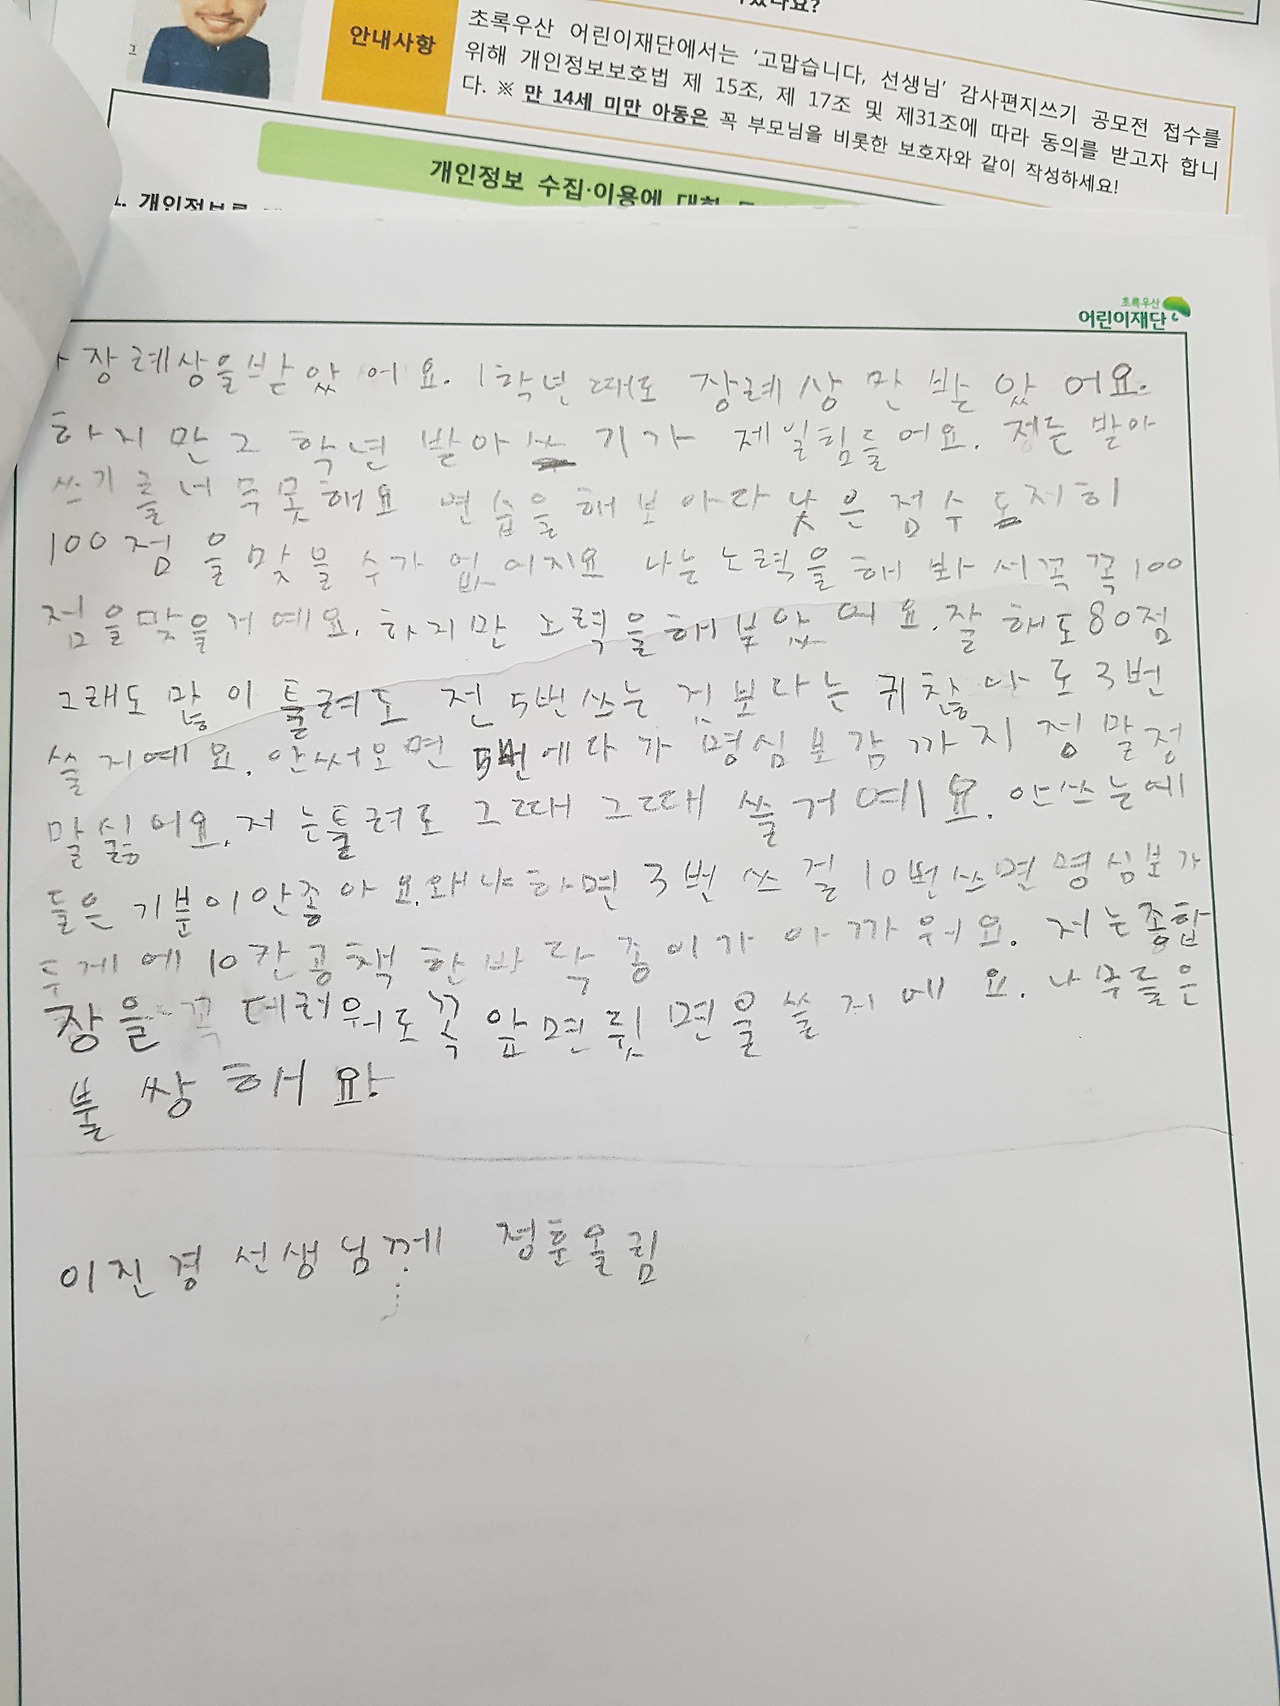 안내사항
초록우산 어린이재단에서는 '고맙습니다, 선생님' 감사편지쓰기 공모전 접수를
위해 개인정보보호법 제 15조, 제 17조 및 제31조에 따라 동의를 받고자 합니
다. ※ 만 14세 미만 아동은 꼭 부모님을 비롯한 보호자와 같이 작성하세요!
개인정보 수집·이용에 대한
1. 개인정보를
초록우산
어린이재단
장례상을받 았 어 요. 1학년 때도 장례상 만 받 았 어요.
하지 만 2 학년 받아 쓰 기가 제일힘들어요. 정든 받아
쓰기 를 너 무못해요 연습을해보 아다 낮 은 점수 도저히
100점 을맞 을 수가 없 어지요 나는노력을 해 봐 서꼭 꼭100
점을맞을거예요. 하지만 노력을해보았 어 요.잘 해도80점
그래도 많 이 틀려도 전 5번쓰는 것보다는 귀찮 아 도 3번
쓸 거예요. 안써오면 5번에다 가 명심보감 까지 정 말정
말싫 어요. 저 는틀려도 그때 그때 쓸거 예 요. 안쓰는애
들은 기분이안좋아 요.왜냐 하면 3번 쓰 걸 10번쓰면 명심보가
두게 에 10칸공책 한바 닥 종이가 아 까 워요. 저는종합
장을 꼭 데러워도꼭 앞면뒷 면을 쓸 거 에 요. 나 무들은
불 쌍 해 요
이진경 선생님께 정훈올림